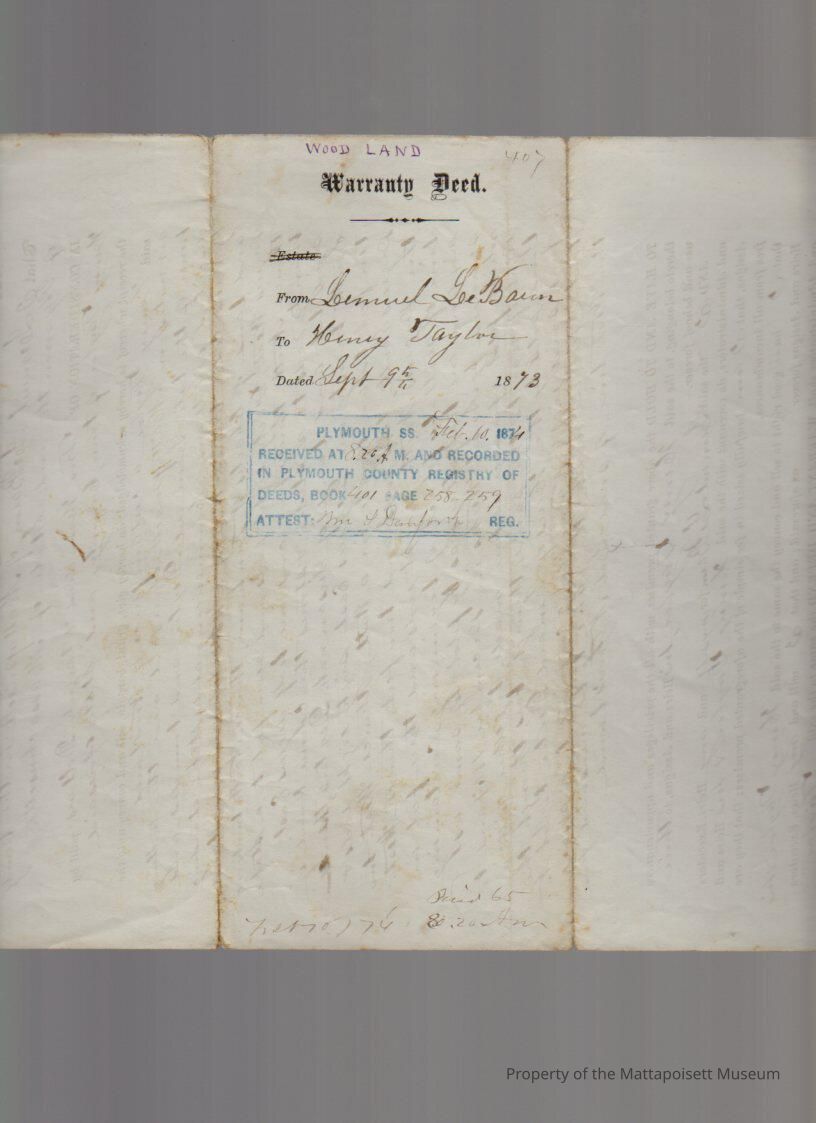 WOOD LAND
407
Warranty Deed.
Estate
From Lemuel Le Baron
To Henry Taylor
Dated Sept 9th 1873
PLYMOUTH SS. Feb. 10. 1874
RECEIVED AT 8.20 A M. AND RECORDED
IN PLYMOUTH COUNTY REGISTRY OF
DEEDS, BOOK 401 PAGE 258-259
ATTEST: Wm S Danforth REG.
Paid 65
Feb 10 / 74 8.20 Am
Property of the Mattapoisett Museum